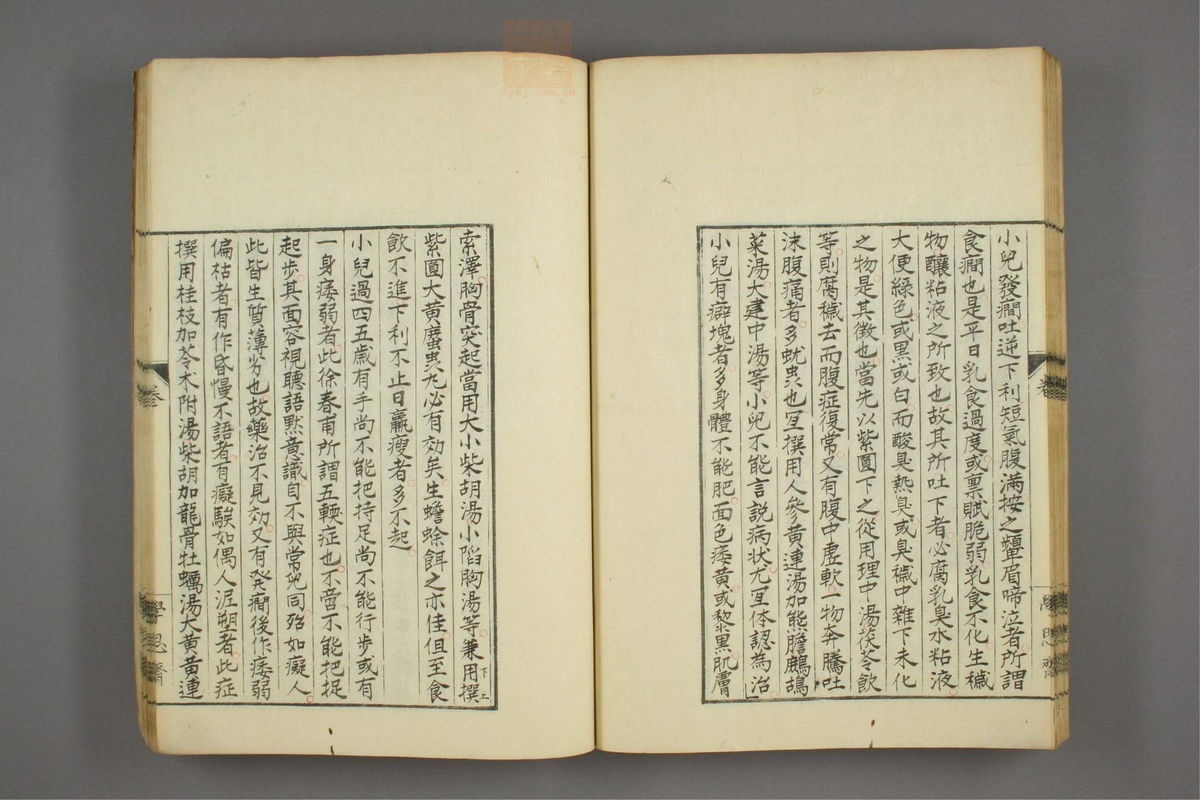 小兒發癇吐逆下利短氣腹滿按之顰眉啼泣者所謂
食癇也是平日乳食過度或禀賦脆弱乳食不化生穢
物釀粘液之所致也故其所吐下者必腐乳臭水粘液
大便綠色或黑或白而酸臭熱臭或臭穢中雜下未化
之物是其徴也當先以紫圓下之從用理中湯茯苓飲
等則腐穢去而腹症復常又有腹中虛軟一物奔騰吐
沫腹痛者多蚘虫也宜撰用人參黄連湯加熊膽鷓鴣
菜湯大建中湯等小兒不能言説病状尤宜体認為治
小兒有癖塊者多身體不能肥面色痿黄或黎黒肌膚
索澤胸骨突起當用大小柴胡湯小陷胸湯等兼用撰
下上
紫圓大黄䗪虫丸必有効矣生蟾蜍餌之亦佳但至食
飲不進下利不止日羸瘦者多不起
小兒過四五歳有手尚不能把持足尚不能行步或有
一身痿弱者此徐春甫所謂五輭症也不啻不能把捉
起步其面容視聽語默意識自不與常兒同殆如癡人
此皆生質薄劣也故藥治不見効又有発癇後作痿弱
偏枯者有作昏慢不語者有癡騃如偶人泥塑者此症
撰用桂枝加苓朮附湯柴胡加龍骨牡蠣湯大黄黄連
卷
學思齋